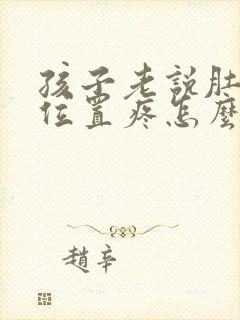 孩子老說肚
位置疼怎麼
趙辛